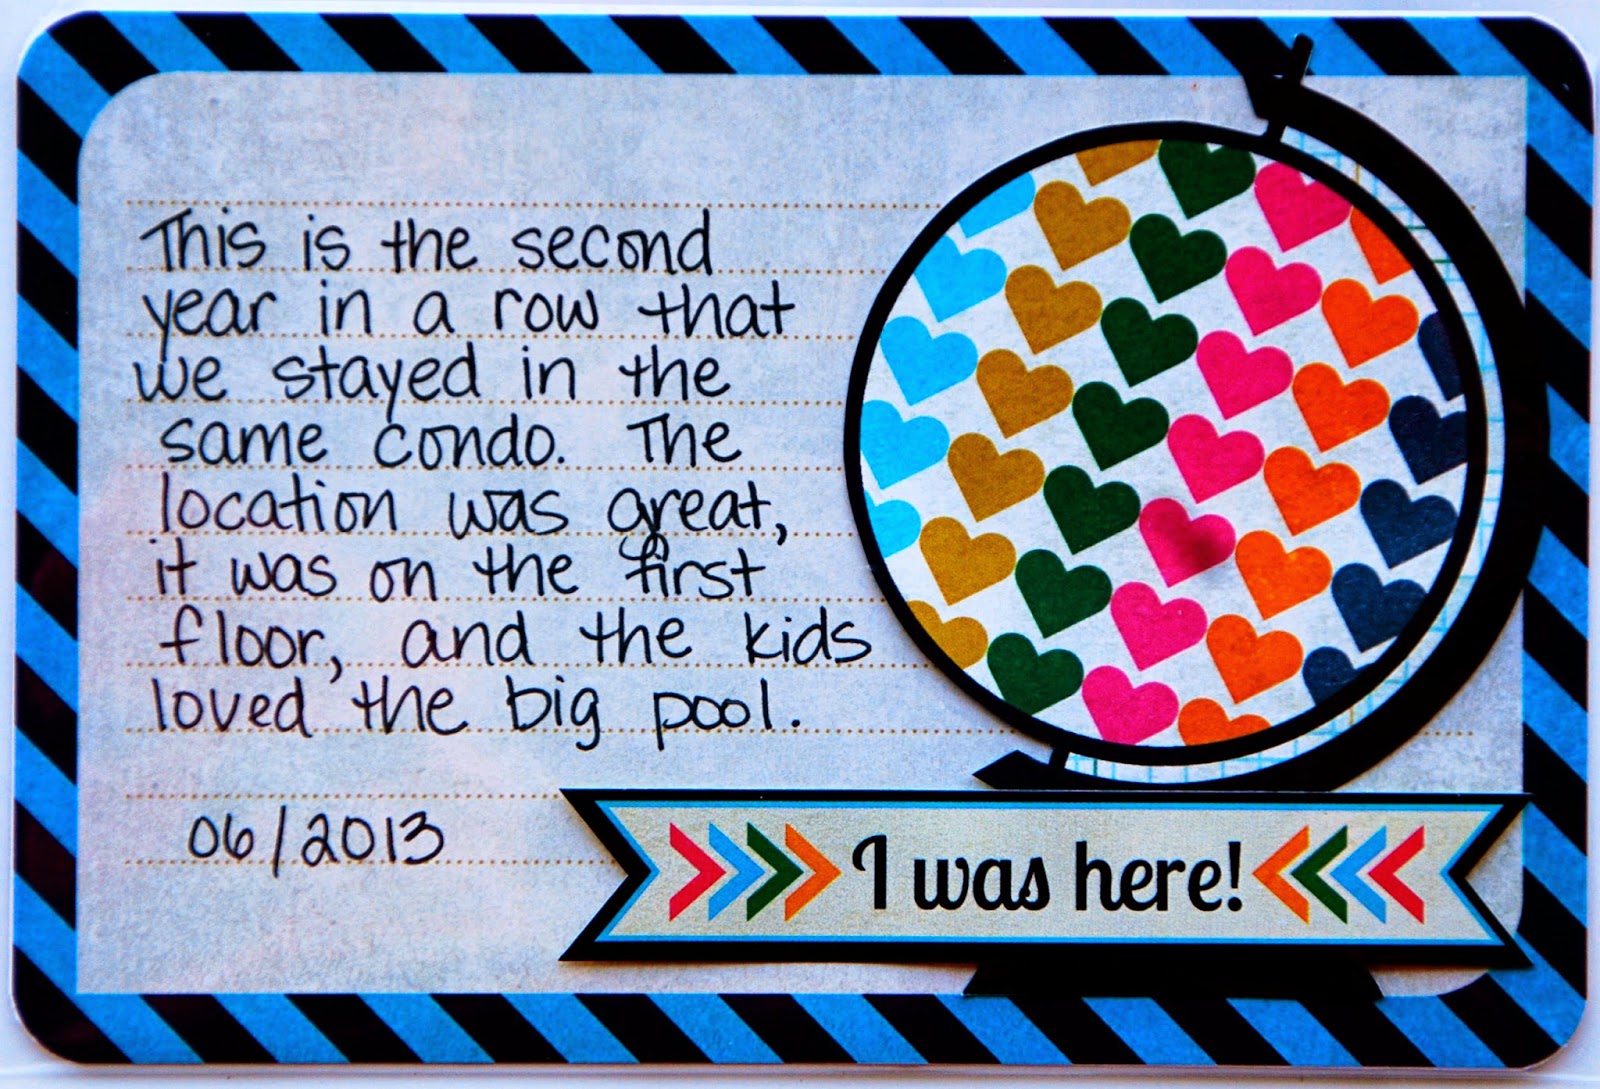 This is the second
year in a row that
we stayed in the
same condo. The
location was great,
it was on the first
floor, and the kids
loved the big pool.
06/2013
I was here!